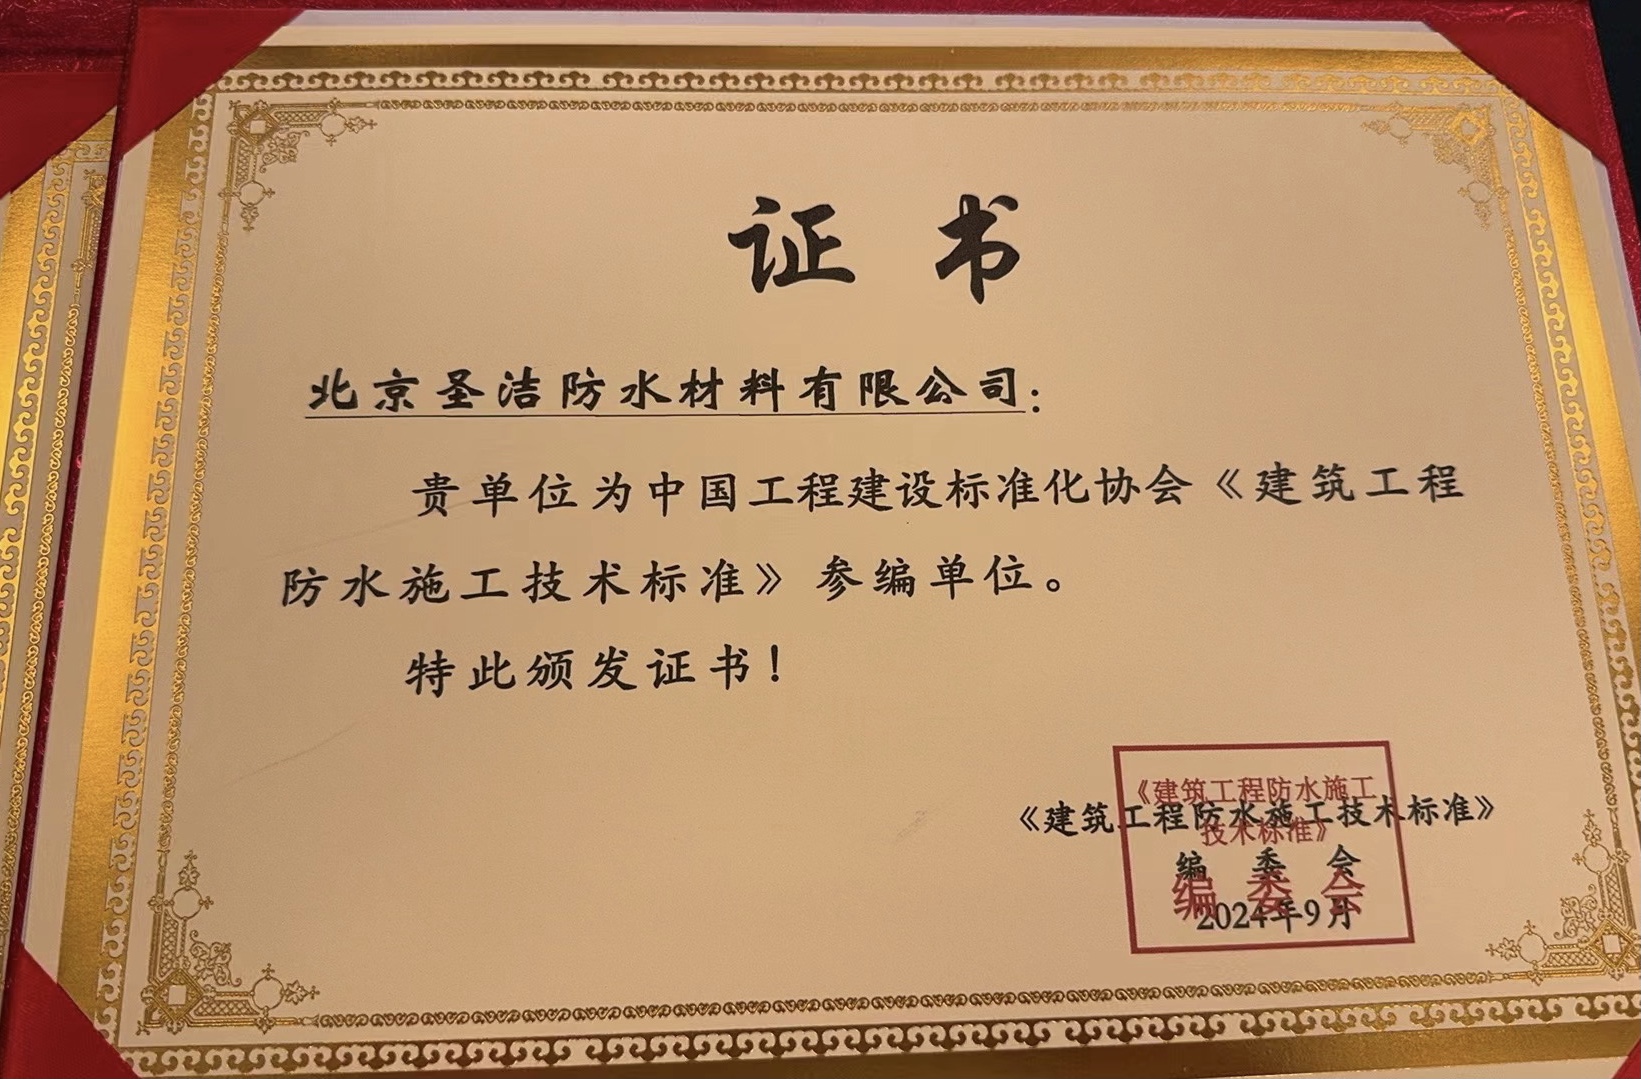 证书
北京圣洁防水材料有限公司：
贵单位为中国工程建设标准化协会《建筑工程
防水施工技术标准》参编单位。
特此颁发证书！
《建筑工程防水施工技术标准》
编委会
2024年9月
《建筑工程防水施工
技术标准》
编委会